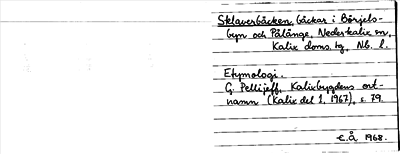 Sklaverbäcken, bäckar i Börjels-
byn och Pålänge, Nederkalix sn,
Kalix doms. tg, Nb. l.
Etymologi.
G. Pellijeff, Kalixbygdens ort-
namn (Kalix del 1. 1967), s. 79.
E.Å 1968.